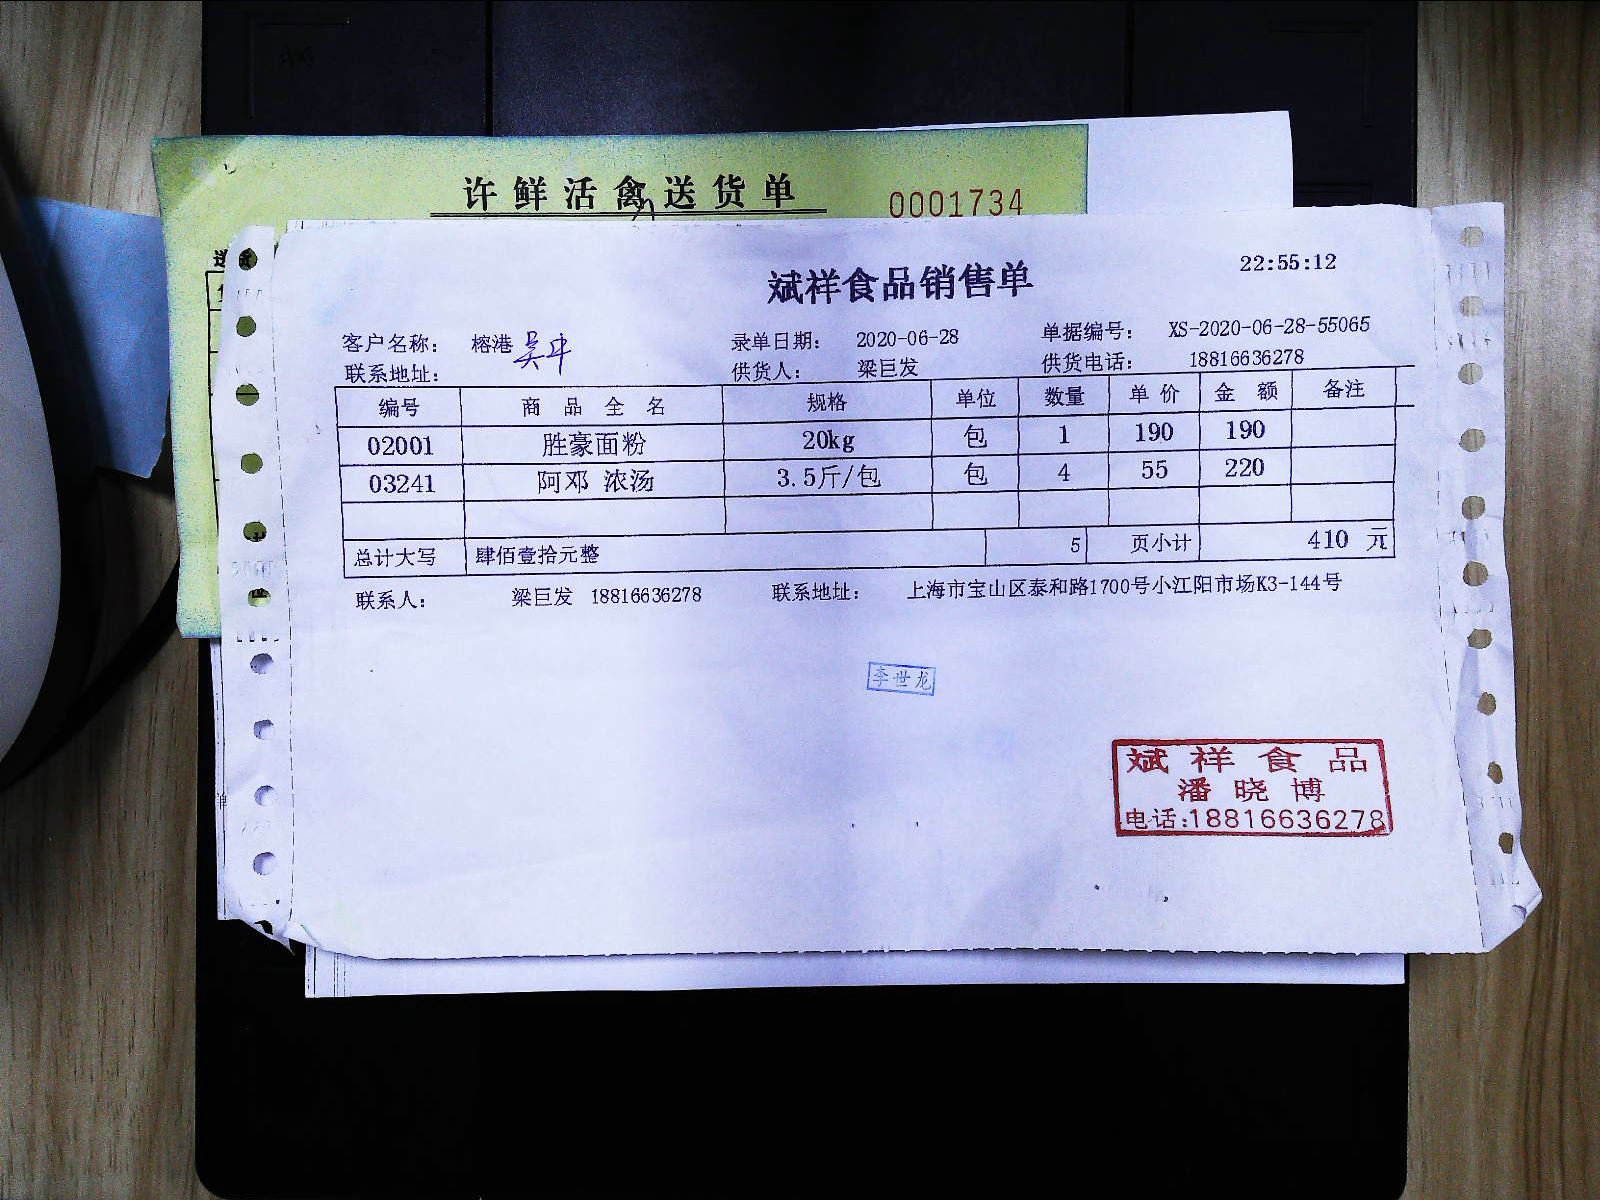 许鲜活禽送货单 0001734
22:55:12
斌祥食品销售单
客户名称： 榕港 录单日期： 2020-06-28 单据编号： XS-2020-06-28-55065
联系地址： 供货人： 梁巨发 供货电话： 18816636278
编号 商品全名 规格 单位 数量 单价 金额 备注
02001 胜豪面粉 20kg 包 1 190 190
03241 阿邓 浓汤 3.5斤/包 包 4 55 220
总计大写 肆佰壹拾元整 5 页小计 410 元
联系人： 梁巨发 18816636278 联系地址： 上海市宝山区泰和路1700号小江阳市场K3-144号
李世龙
斌祥食品
潘晓博
电话:18816636278